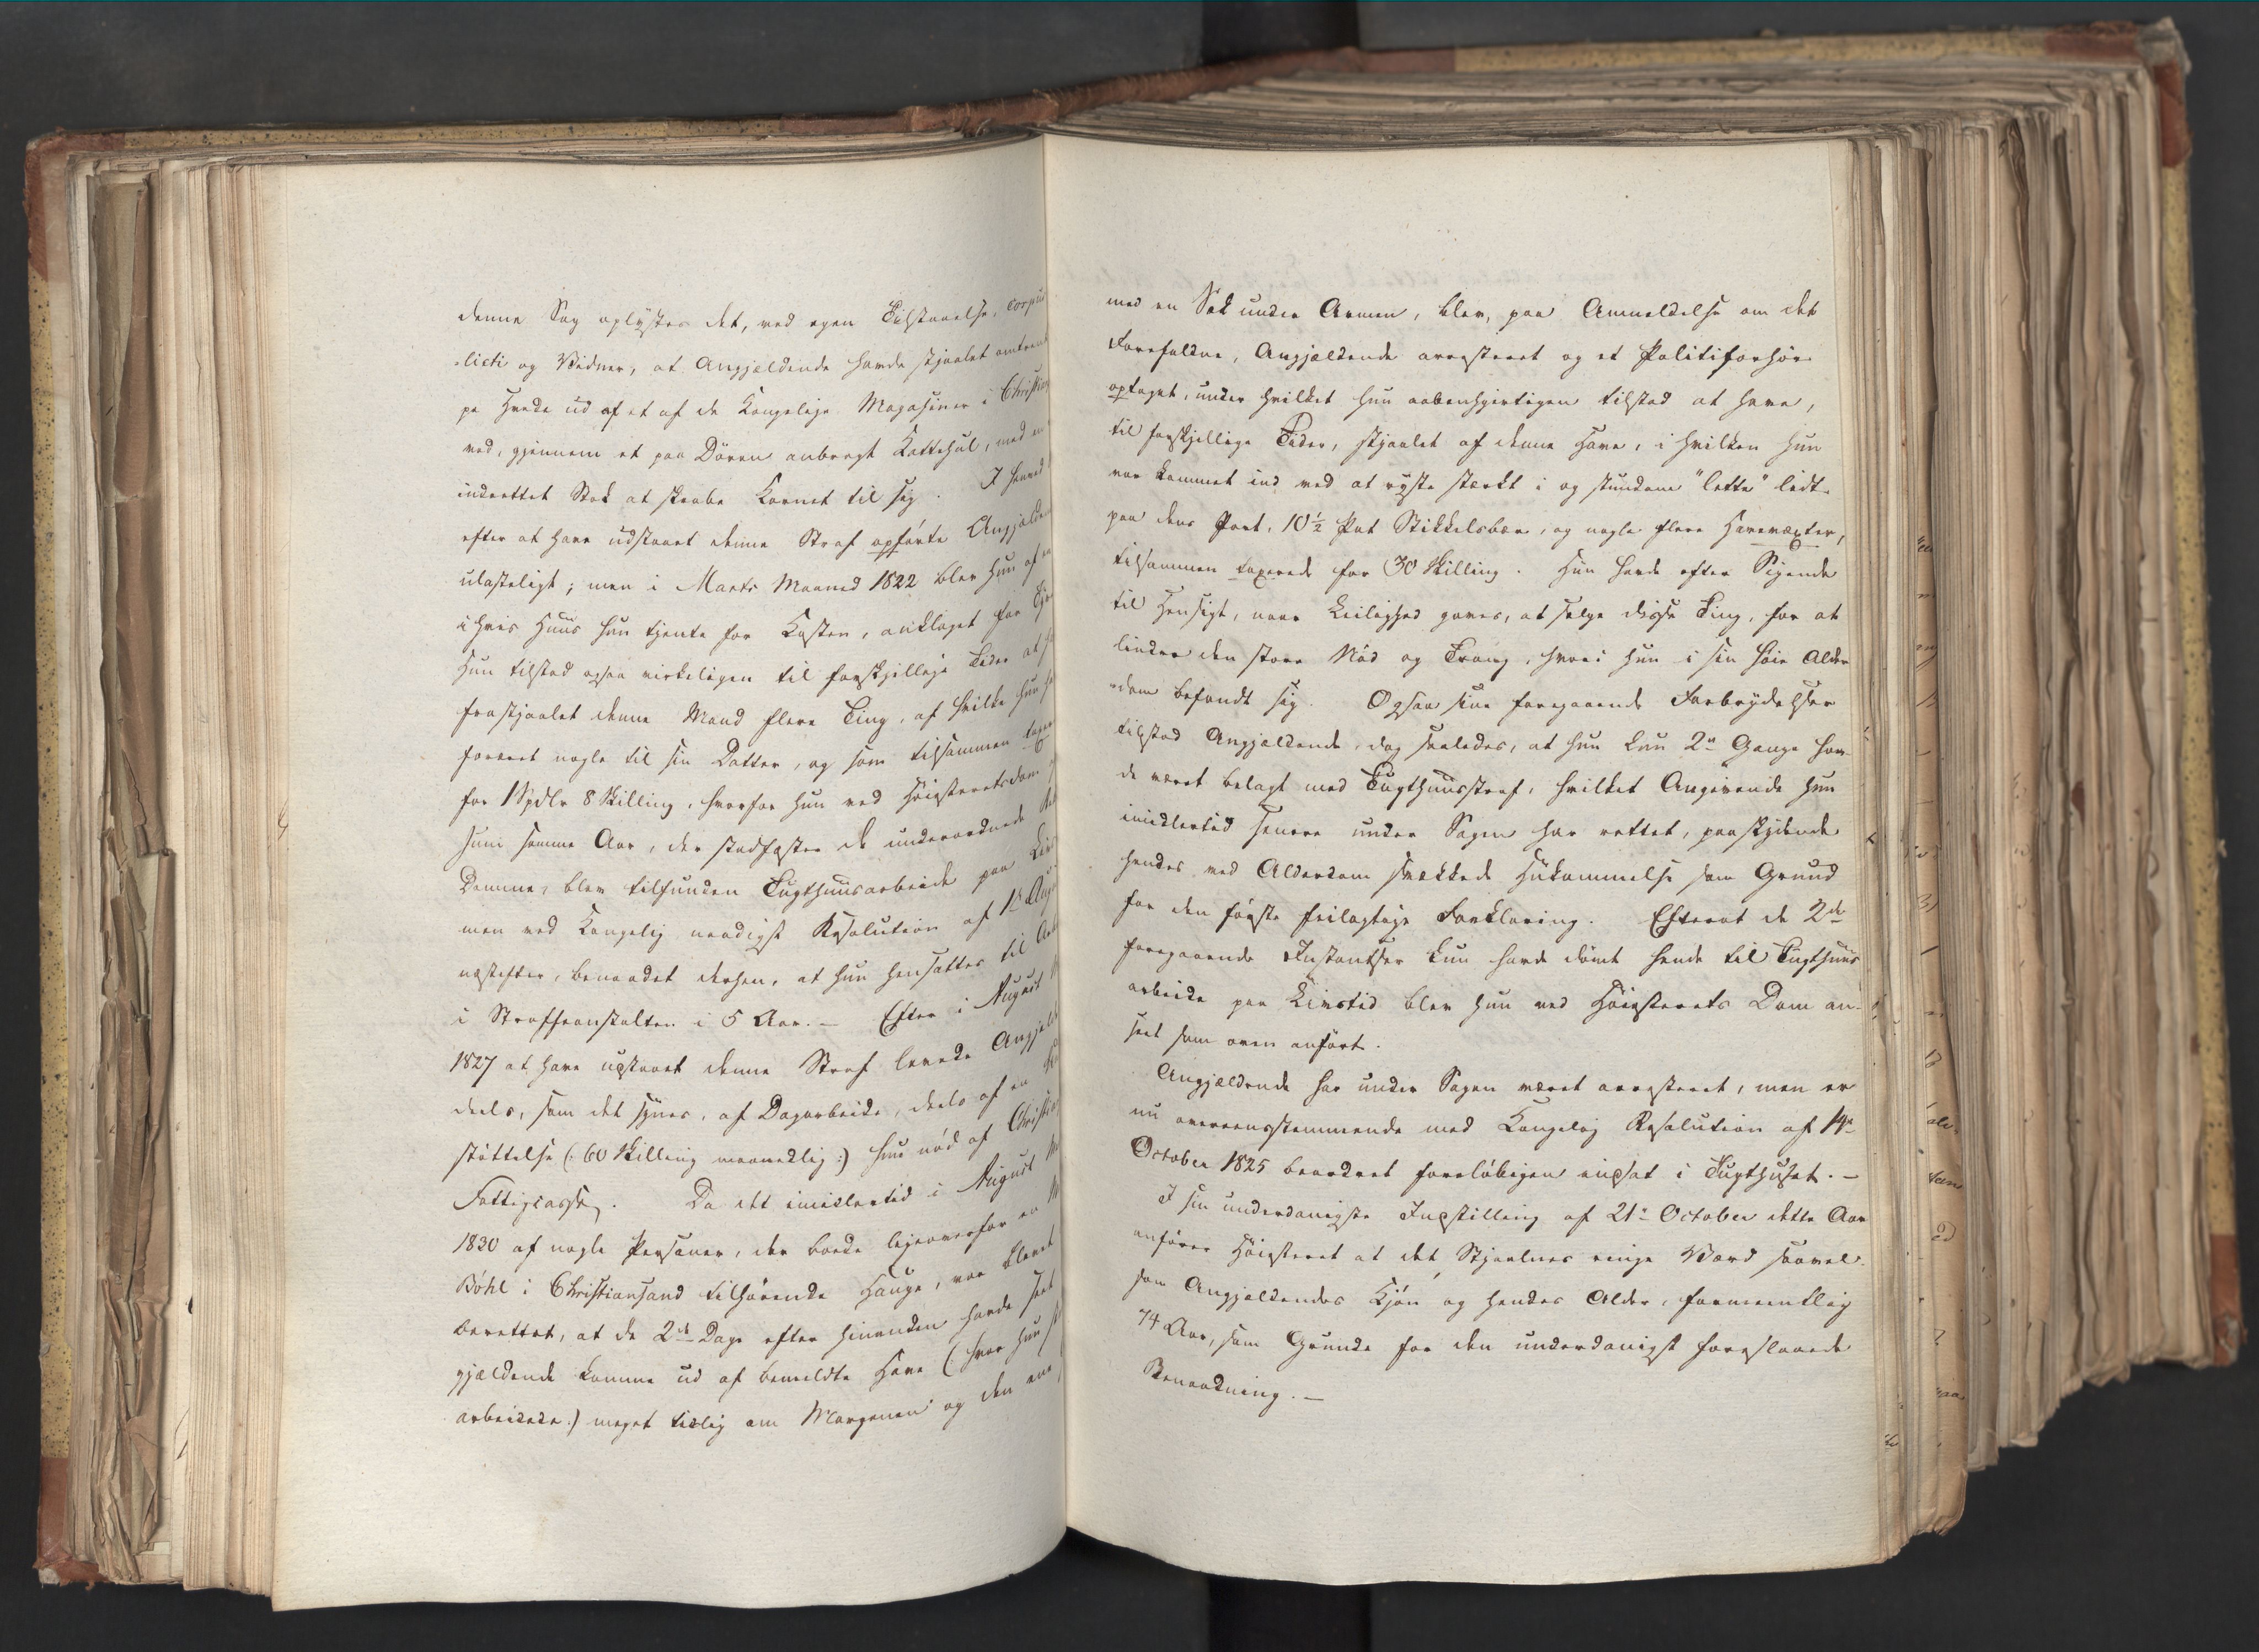 denne Sag oplystes det, ved egen Tilstaaelse, corpus
-licti og Vidner, at Angjældende havde stjaalet omtrent
pe Hvede ud af et af de Kongelige Magasiner i Christian
ved, gjennem et paa Døren anbragt Kattehul, med en
indrettet Stok at skrabe Kornet til sig. I Henved
efter at have udstaaet denne Straf opførte Angjælden
ulasteligt; men i Marts Maaned 1822 blev hun af
i hvis Huus hun tjente for Kosten, anklaget for Tyv
Hun tilstod ogsaa virkeligen til forskjellige Tider at
frastjaalet denne Mand flere Ting, af hvilke hun
foræret nogle til sin Datter, og som tilsammen taxer
for 1 Spdlr 8 Skilling, hvorfor hun ved Høiesteretsdom
Juni samme Aar, der stadfæstes de underordnede
Domme, blev tilfunden Tugthuusarbeide paa Liv
men ved Kongelig naadigst Resolution af 12 Aug
næstefter, benaadet derhen, at hun hensattes til Arb
i Straffeanstalten i 5 Aar. — Efter i August
1827 at have udstaaet denne Straf levede Angjæld
deels, som det synes, af Dagarbeide, deels af en
støttelse (: 60 Skilling maanedlig :) hun nød af Christia
Fattigcasse. Da det imidlertid i August
1830 af nogle Personer, der boede ligeoverfor en
Böhl i Christiansand tilhørende Hauge, var blevet
berettet, at de 2de Dage efter hinanden havde seet
gjældende komme ud af bemeldte Have (: hvor hun
arbeidede :) meget tidlig om Morgenen og den ene
med en Sæk under Armen, blev, paa Anmeldelse om det
Forefaldne, Angjældende arresteret og et Politiforhør
optaget, under hvilket hun aabenhjertigen tilstod at have,
til forskjellige Tider, stjaalet af denne Have, i hvilken hun
var kommet ind ved at ryste stærkt i og stundom "lette" lidt
paa dens Port, 10½ Pot Stikkelsbær, og nogle flere Havevæxter,
tilsammen taxerede for 30 Skilling. Hun havde efter Sigende
til Hensigt, naar Leilighed gaves, at sælge disse Ting, for at
lindre den store Nød og Trang, hvori hun i sin høie Alder
-dom befandt sig. Ogsaa sine foregaaende Forbrydelser
tilstod Angjældende, dog saaledes, at hun kun 2n Gange hav-
de været belagt med Tugthuusstraf, hvilket Angivende hun
imidlertid senere under Sagen har rettet, paaskydende
hendes ved Alderdom svækkede Hukommelse som Grund
for den første feilagtige Forklaring. Efterat de 2de
foregaaende Instantser kun havde dømt hende til Tugthuus
arbeide paa Livstid blev hun ved Høiesterets Dom an-
seet som oven anført.
Angjældende har under Sagen været arresteret, men er
nu overeensstemmende med Kongelig Resolution af 14de
October 1825 beordret foreløbigen indsat i Tugthuset. —
I sin underdanigste Indstilling af 21de October dette Aar
anfører Høiesteret at det Stjaalnes ringe Værd saavel
som Angjældendes Kjøn og hendes Alder, formeentlig
74 Aar, som Grunde for den underdanigst foreslaaede
Benaadning. —